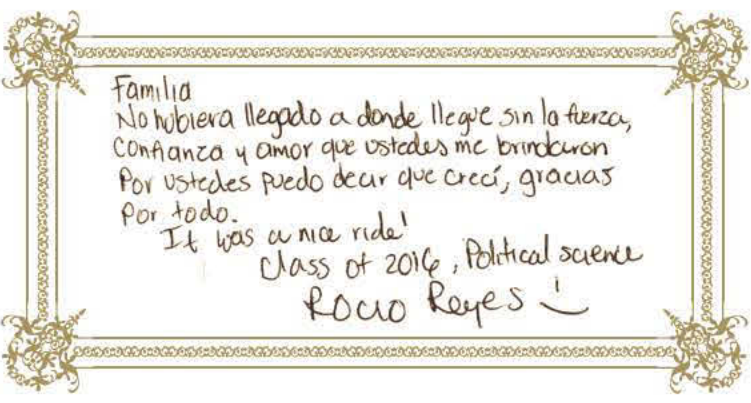 Familia
No hubiera llegado a donde llegue sin la fuerza,
Confianza y amor que ustedes me brindaron
Por ustedes puedo decir que crecí, gracias
Por todo.
It was a nice ride!
Class of 2016, Political science
Rocio Reyes